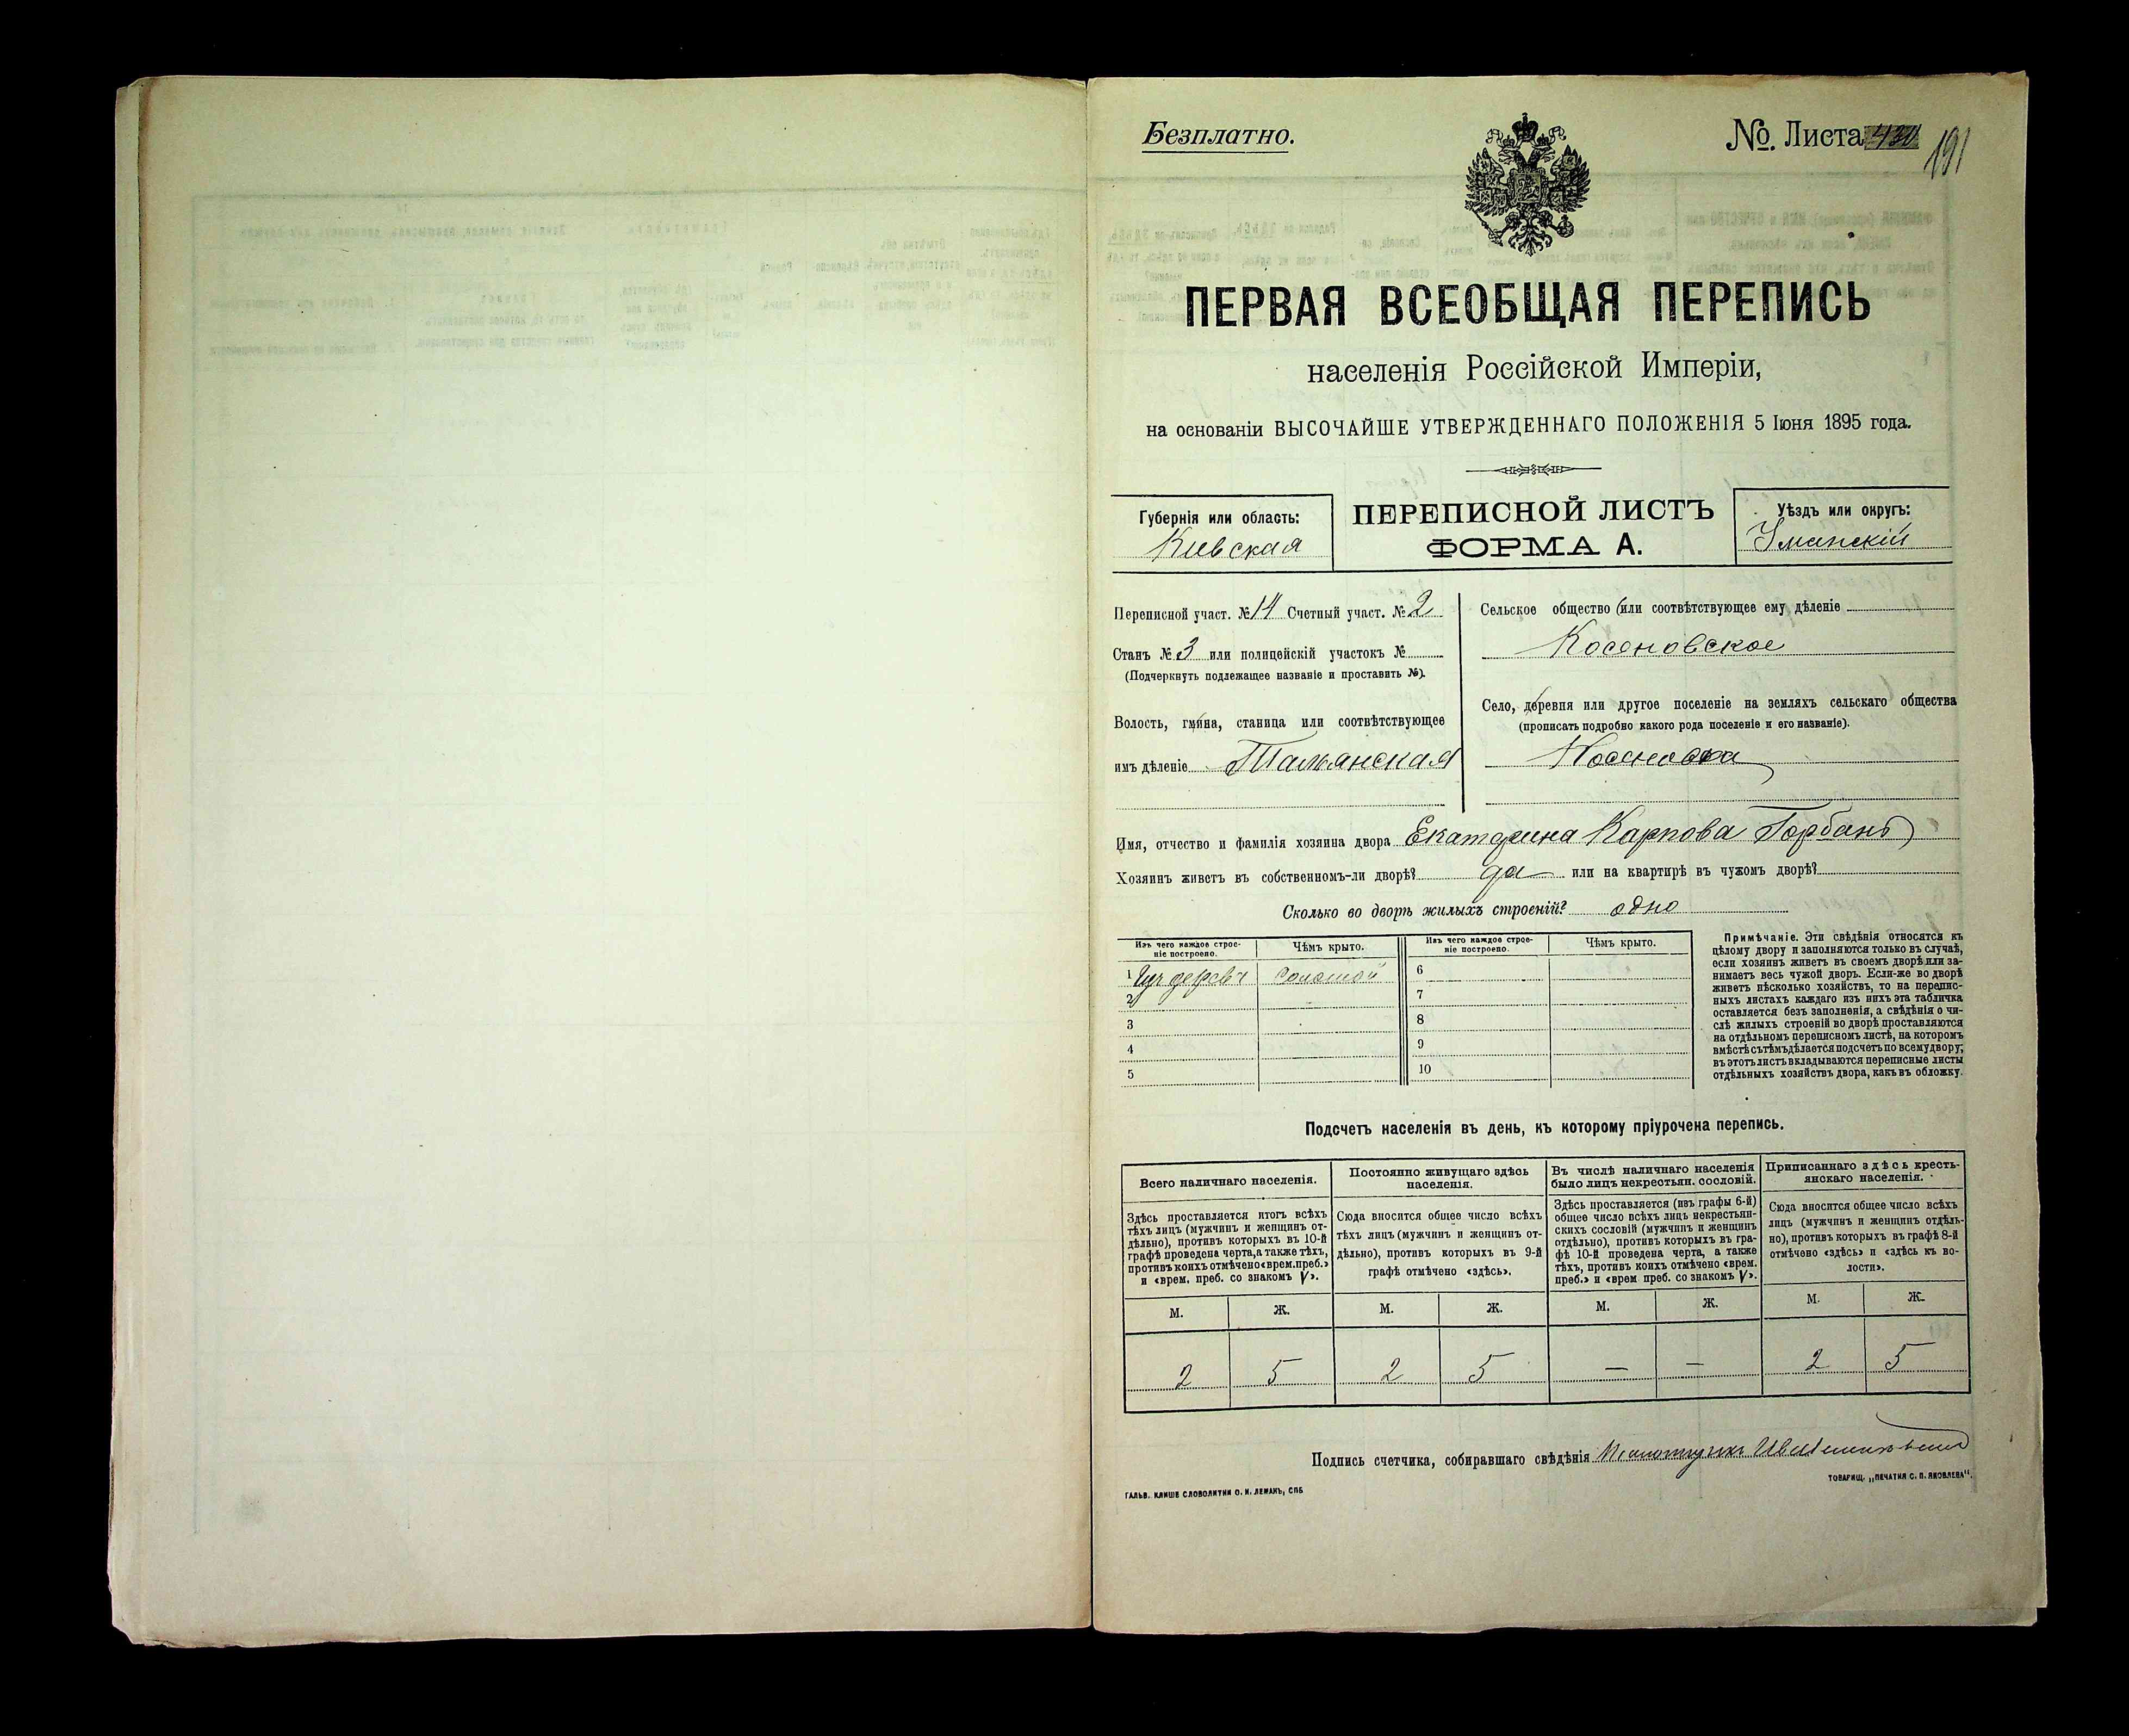 Безплатно.
№. Листа 430
191
ПЕРВАЯ ВСЕОБЩАЯ ПЕРЕПИСЬ
населенія Россійской Имперіи,
на основаніи ВЫСОЧАЙШЕ УТВЕРЖДЕННАГО ПОЛОЖЕНІЯ 5 Іюня 1895 года.
Губернія или область:
Кіевская
ПЕРЕПИСНОЙ ЛИСТЪ
ФОРМА А.
Уѣздъ или округъ:
Уманскій
Переписной участ. № 14 Счетный участ. № 2
Станъ № 3 или полицейскій участокъ №
(Подчеркнуть подлежащее названіе и проставить №).
Волость, гмина, станица или соотвѣтствующее
имъ дѣленіе Тальянская
Сельское общество (или соотвѣтствующее ему дѣленіе
Косеновское
Село, деревня или другое поселеніе на земляхъ сельскаго общества
(прописать подробно какого рода поселеніе и его названіе).
Косеновка
Имя, отчество и фамилія хозяина двора Екатерина Карпова Горбань
Хозяинъ живетъ въ собственномъ-ли дворѣ? да или на квартирѣ въ чужомъ дворѣ?
Сколько во дворѣ жилыхъ строеній? одно
Изъ чего каждое строе-
ніе построено.
Чѣмъ крыто.
Изъ чего каждое строе-
ніе построено.
Чѣмъ крыто.
1 Изъ дерева соломой
2
3
4
5
6
7
8
9
10
Примѣчаніе. Эти свѣдѣнія относятся къ
цѣлому двору и заполняются только въ случаѣ,
если хозяинъ живетъ въ своемъ дворѣ или за-
нимаетъ весь чужой дворъ. Если-же во дворѣ
живетъ нѣсколько хозяйствъ, то на перепис-
ныхъ листахъ каждаго изъ нихъ эта табличка
оставляется безъ заполненія, а свѣдѣнія о чи-
слѣ жилыхъ строеній во дворѣ проставляются
на отдѣльномъ переписномъ листѣ, на которомъ
вмѣстѣ съ тѣмъ дѣлается подсчетъ по всему двору;
въ этотъ листъ вкладываются переписные листы
отдѣльныхъ хозяйствъ двора, какъ въ обложку.
Подсчетъ населенія въ день, къ которому пріурочена перепись.
Всего наличнаго населенія.
Здѣсь проставляется итогъ всѣхъ
тѣхъ лицъ (мужчинъ и женщинъ от-
дѣльно), противъ которыхъ въ 10-й
графѣ проведена черта, а также тѣхъ,
противъ коихъ отмѣчено «врем. преб.»
и «врем. преб. со знакомъ V».
Постоянно живущаго здѣсь
населенія.
Сюда вносится общее число всѣхъ
тѣхъ лицъ (мужчинъ и женщинъ от-
дѣльно), противъ которыхъ въ 9-й
графѣ отмѣчено «здѣсь».
Въ числѣ наличнаго населенія
было лицъ некрестьян. сословій.
Здѣсь проставляется (изъ графы 6-й)
общее число всѣхъ лицъ некрестьян-
скихъ сословій (мужчинъ и женщинъ
отдѣльно), противъ которыхъ въ гра-
фѣ 10-й проведена черта, а также
тѣхъ, противъ коихъ отмѣчено «врем.
преб.» и «врем преб. со знакомъ V».
Приписаннаго здѣсь кресть-
янскаго населенія.
Сюда вносится общее число всѣхъ
лицъ (мужчинъ и женщинъ отдѣль-
но), противъ которыхъ въ графѣ 8-й
отмѣчено «здѣсь» и «здѣсь къ во-
лости».
М. Ж. М. Ж. М. Ж. М. Ж.
2 5 2 5 — — 2 5
Подпись счетчика, собиравшаго свѣдѣнія
ГАЛЬВ. КЛИШЕ СЛОВОЛИТНИ О. И. ЛЕМАНЪ, СПБ
ТОВАРИЩ. „ПЕЧАТНЯ С. П. ЯКОВЛЕВА".